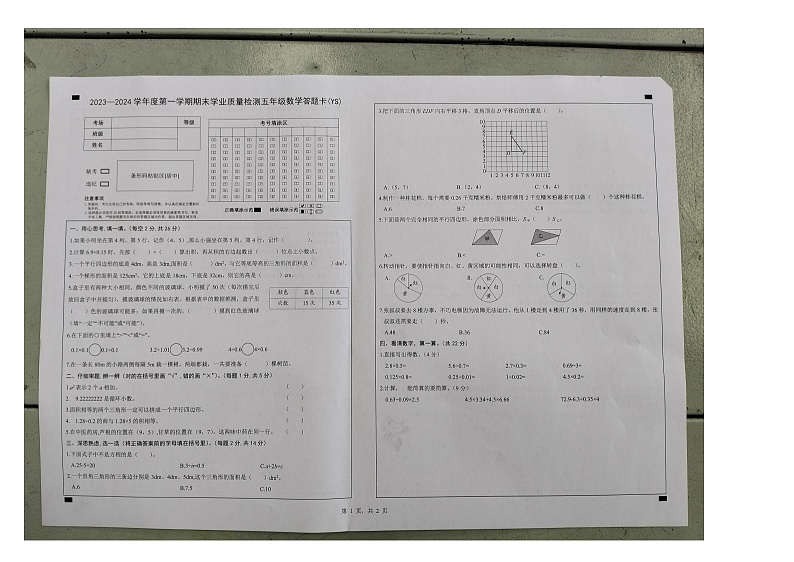 2023—2024 学年度第一学期期末学业质量检测五年级数学答题卡(YS)
考场 等级
班级
姓名
考号填涂区
缺考
违纪
条形码粘贴区(居中)
注意事项
正确填涂示范 错误填涂示范
一、用心思考,填一填。(每空 2 分,共 26 分)
1.如果小明坐在第 4 列、第 5 行,记作(4,5),那么小强坐在第 5 列、第 4 行,记作( )。
2.计算 6.9×0.15 时,先按( )×( )算出积,再从积的右边起数出( )位点上小数点。
3.一个平行四边形的底是 4dm,高是 3dm,面积是( )dm²,与它等底等高的三角形的面积是( )dm²。
4.一个梯形的面积是 125cm²,它的上底是 18cm,下底是 32cm,则它的高是( )cm。
5.盒子里有两种大小相同、颜色不同的玻璃球,小明摸了 50 次(每次摸完后
放回盒子中并摇匀),摸玻璃球的情况如右表,根据表中的数据推测,盒子里
( )色的玻璃球可能多;如果再摸一次的,( )摸到红色玻璃球
(填“一定”“不可能”或“可能”)。
颜色 蓝色 红色
次数 15 次 35 次
6.在下面的○里填上“>”“<”或“=”。
0.1÷0.1 0.1×0.1 3.2÷1.01 3.2÷0.99 4÷0.6 4×0.6
7.在一条长 80m 的小路两侧每隔 5m 栽一棵树,两端都栽,一共要准备( )棵树苗。
二、仔细审题,辨一辨(对的在括号里画“√”,错的画“×”)。(每题 1 分,共 5 分)
1.a²表示 2 个 a 相加。 ( )
2. 9.22222222 是循环小数。 ( )
3.面积相等的两个三角形一定可以拼成一个平行四边形。 ( )
4. 1.28÷0.2 的商与 1.28×5 的积相等。 ( )
5.在中医药房,芦根的位置在(9,5),甘草的位置在(9,7),这两味中药在同一行。 ( )
三、深思熟虑,选一选(将正确答案前的字母填在括号里)。(每题 2 分,共 14 分)
1.下面式子中不是方程的是( )。
A.25-5=20 B.3÷n=0.5 C.a+2b=c
2.一个直角三角形的三条边分别是 3dm、4dm、5dm,这个三角形的面积是( )dm²。
A.6 B.7.5 C.10
3.把下面的三角形 EDF 向右平移 3 格,直角顶点 D 平移后的位置是( )。
10
9
8
7
6
5
4
3
2
1
0
1 2 3 4 5 6 7 8 9 10 11 12
A.(5,7) B.(2,4) C.(8,4)
4.制作一种桂花糕,每个需要 0.26 千克糯米粉,烘焙师傅用 2 千克糯米粉最多可以做( )个这种桂花糕。
A.6 B.7 C.8
5.下面是两个完全相同的平行四边形,涂色部分面积相比,S甲( )S乙。
甲 乙
A.> B.< C.=
6.转动指针,要使指针指向白、红、黄区域的可能性相同,可以选择转盘( )。
A. B. C.
白 红 黄
白 红 黄 红 白 黄
白 红 黄
7.张叔叔要去 8 楼办事,不巧电梯因为故障无法运行,他从 1 楼走到 4 楼用了 36 秒,用同样的速度走到 8 楼,张
叔叔还需要走( )秒。
A.48 B.36 C.84
四、看清数字,算一算。(共 22 分)
1.直接写出得数。(4 分)
2.8×0.5= 5.6÷0.7= 2.7×0.3= 0.69÷3=
0.125×0.8= 0.25÷0.01= 1×0.02= 4.5×0.2=
2.计算,能简算的要简算。(9 分)
0.63÷0.09×2.5 4.5×3.34+4.5×6.66 72.9-6.3÷0.35×4
第 1 页,共 2 页